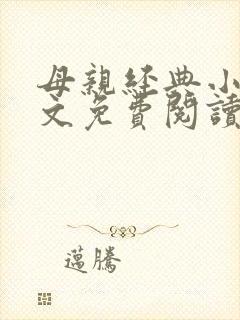 母親經典小
文免費閱讀
邁騰